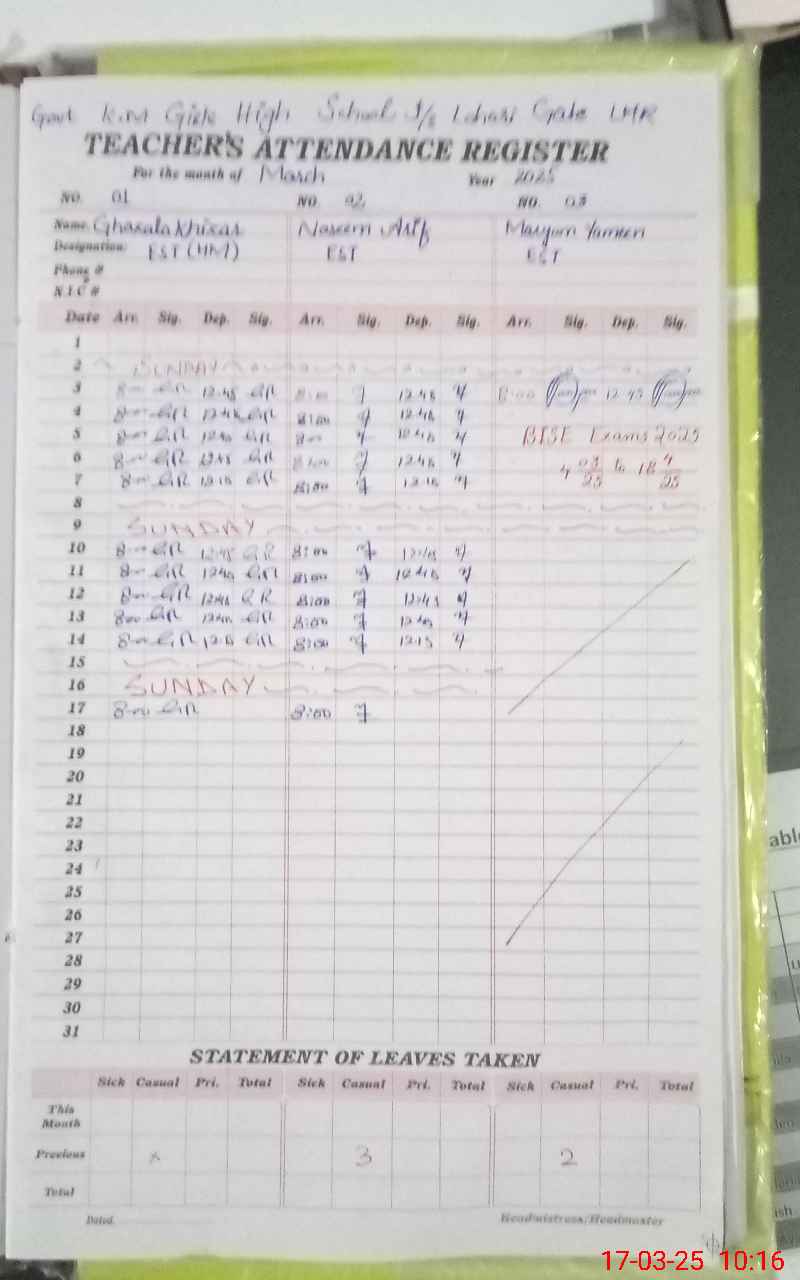 Govt Girls High School I/s Lohari Gate LHR
TEACHER'S ATTENDANCE REGISTER
For the month of March Year 2025
NO. 01 NO. 02 NO. 03
Name Ghazala Khizar Naseem Arif Maryum
Designation: EST (HM) EST EST
Phone #
N.I.C #
Date Arr. Sig. Dep. Sig. Arr. Sig. Dep. Sig. Arr. Sig. Dep. Sig.
1
2 SUNDAY
3 8:00 GR 12:45 GR 8:00 12:45 8:00 12:45
4 8:00 GR 12:45 GR 8:00 12:45
5 8:00 GR GR 8:00 BISE Exams 2025
6 8:00 GR 12:45 GR 8:00 12:45 4 03/25 to 18 4/25
7 8:00 GR 12:15 GR 8:00 12:15
8
9 SUNDAY
10 8:00 GR 12:45 GR 8:00
11 8:00 GR GR 8:00
12 8:00 GR GR 8:00 12:45
13 8:00 GR GR 8:00
14 8:00 GR 12:15 GR 8:00 12:15
15
16 SUNDAY
17 8:00 GR 8:00
18
19
20
21
22
23
24
25
26
27
28
29
30
31
STATEMENT OF LEAVES TAKEN
Sick Casual Pri. Total Sick Casual Pri. Total Sick Casual Pri. Total
This
Month
Previous x 3 2
Total
Dated. Headmistress/Headmaster
17-03-25 10:16